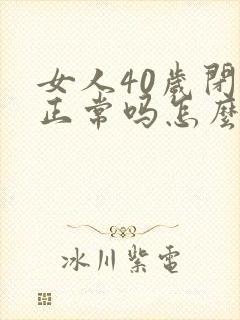 女人40歲閉
正常吗怎麼
冰川紫電